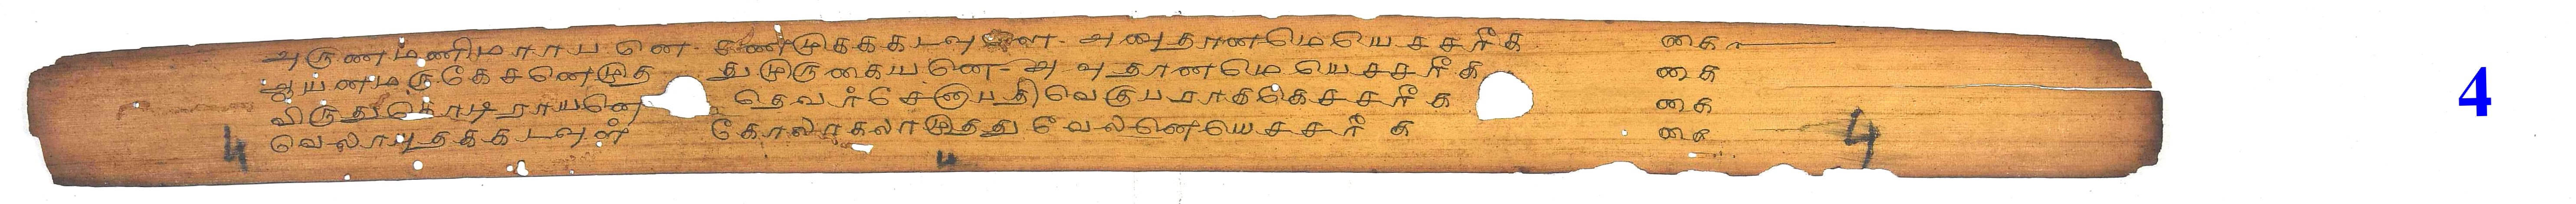 அருணமணிமாாயனெ- சண்முகக்கடவுளெ- அனுதானமெயெசசரீக கை
ஆயனமருகேசனெமுத துமுருகையனெ- அவதானமெயெசசரீக கை
விருதுகொடிராயனெ தெவர்சேனுபதிவெகுபராக்கேசசரீக கை
வெலாயுதக்கடவுள் கோலாகலாமுதது வேலனெயெசசரீ க கை
4 4
4